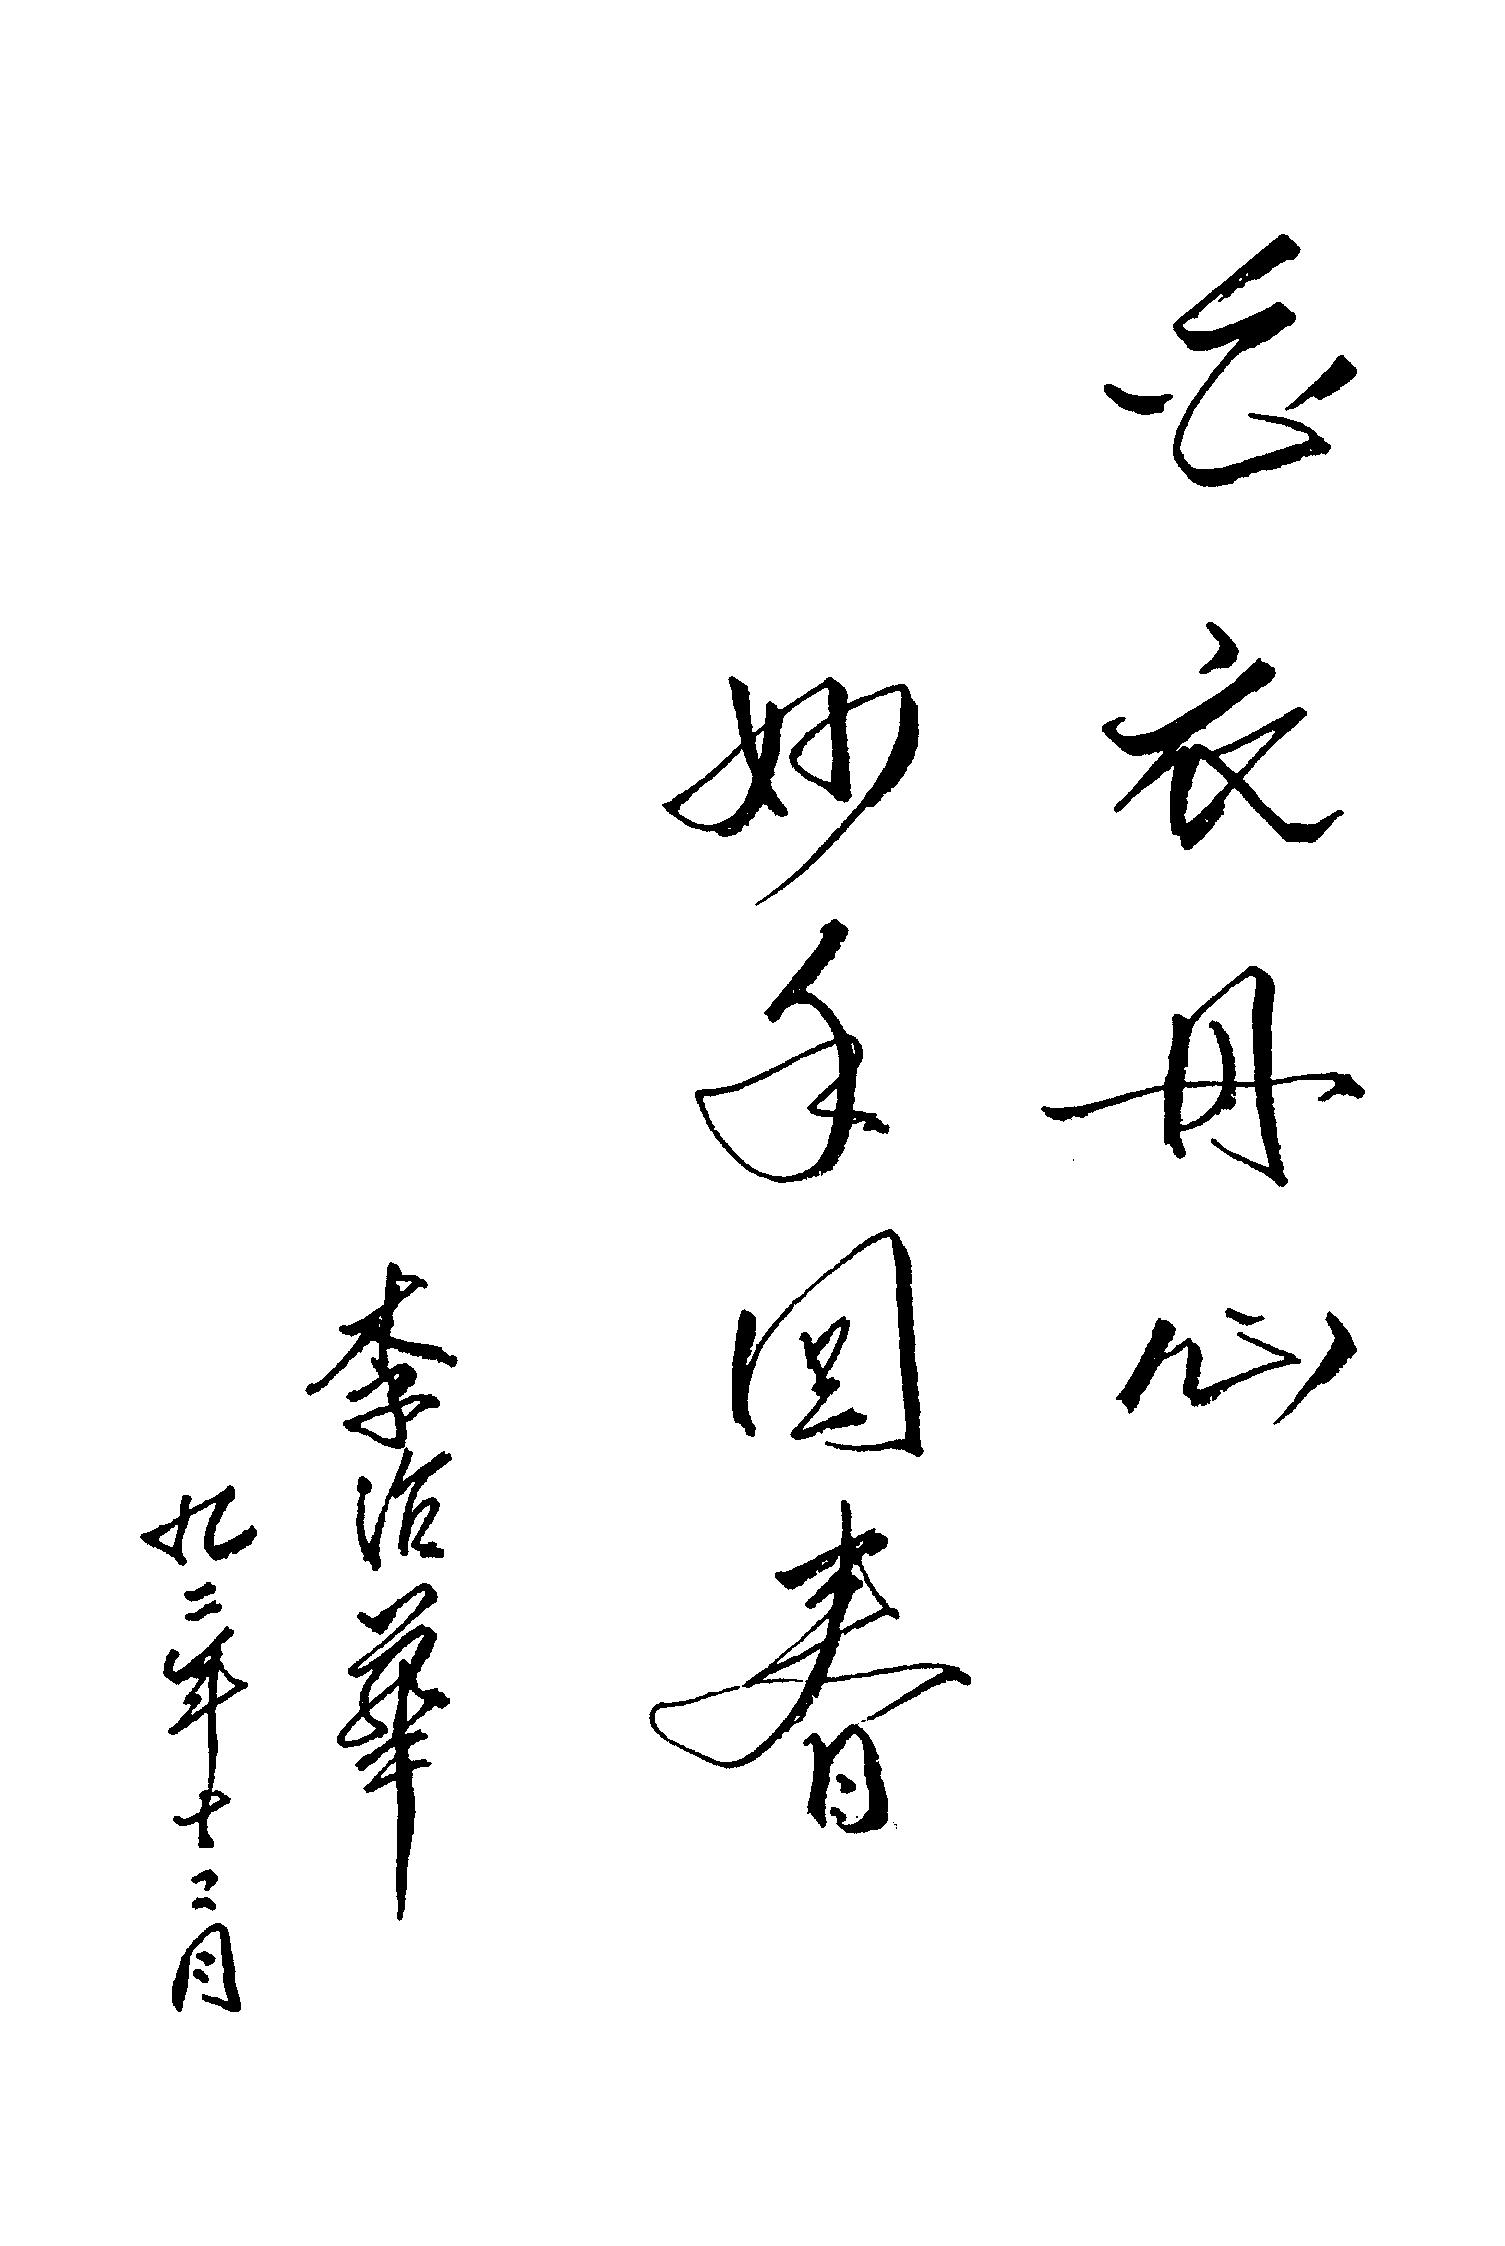 白衣丹心
妙手回春
李治華
九二年十二月